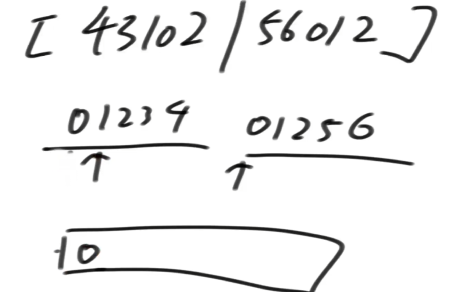 [ 43102 / 56012 ]
01234 01256
↑ ↑
10